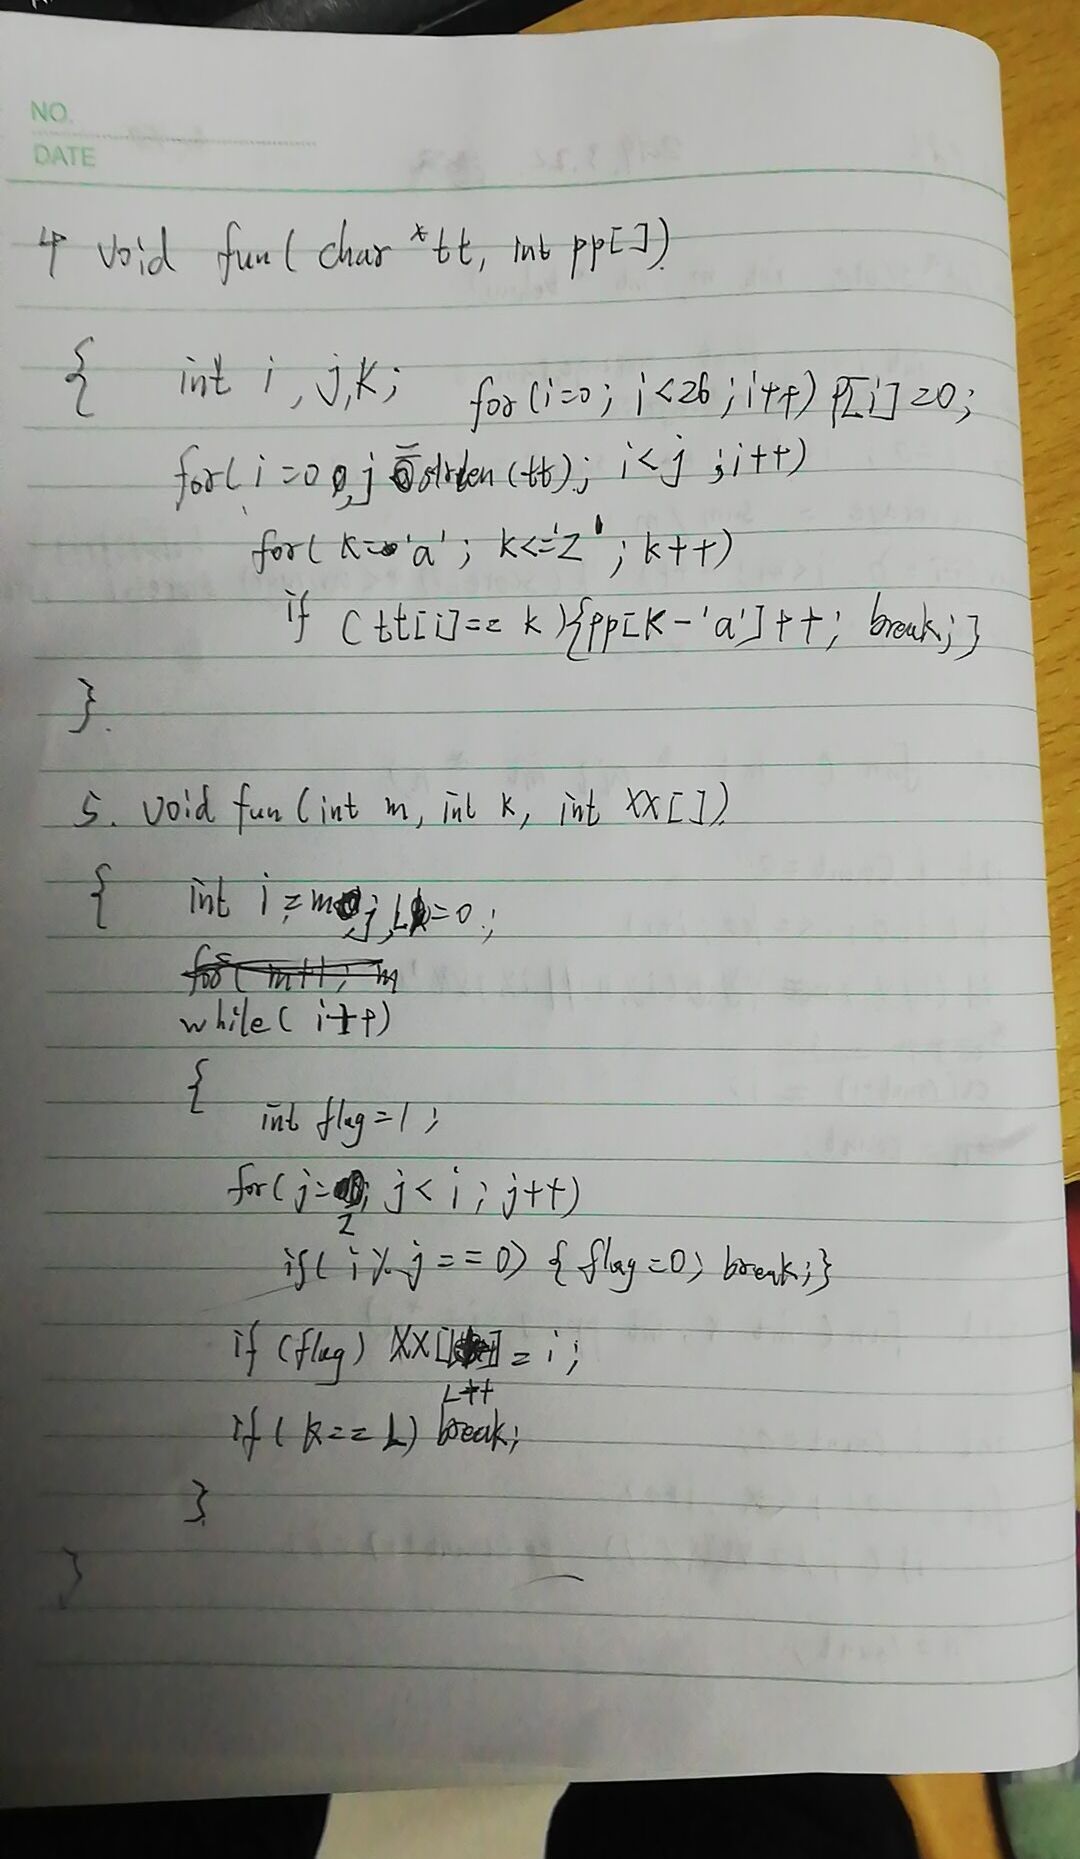 NO.
DATE
4 void fun( char *tt, int pp[])
{ int i, j, k; for (i=0; i<26; i++) p[i]=0;
for( i=0, j=strlen(tt); i<j; i++)
for( k='a'; k<='z'; k++)
if (tt[i]==k){pp[k-'a']++; break;}
}
5. void fun (int m, int k, int xx[])
{ int i=m, j, L=0;
while( i++)
{
int flag=1;
for(j=2; j<i; j++)
if( i%j==0) {flag=0; break;}
if (flag) xx[L++]=i;
if( k==L) break;
}
}